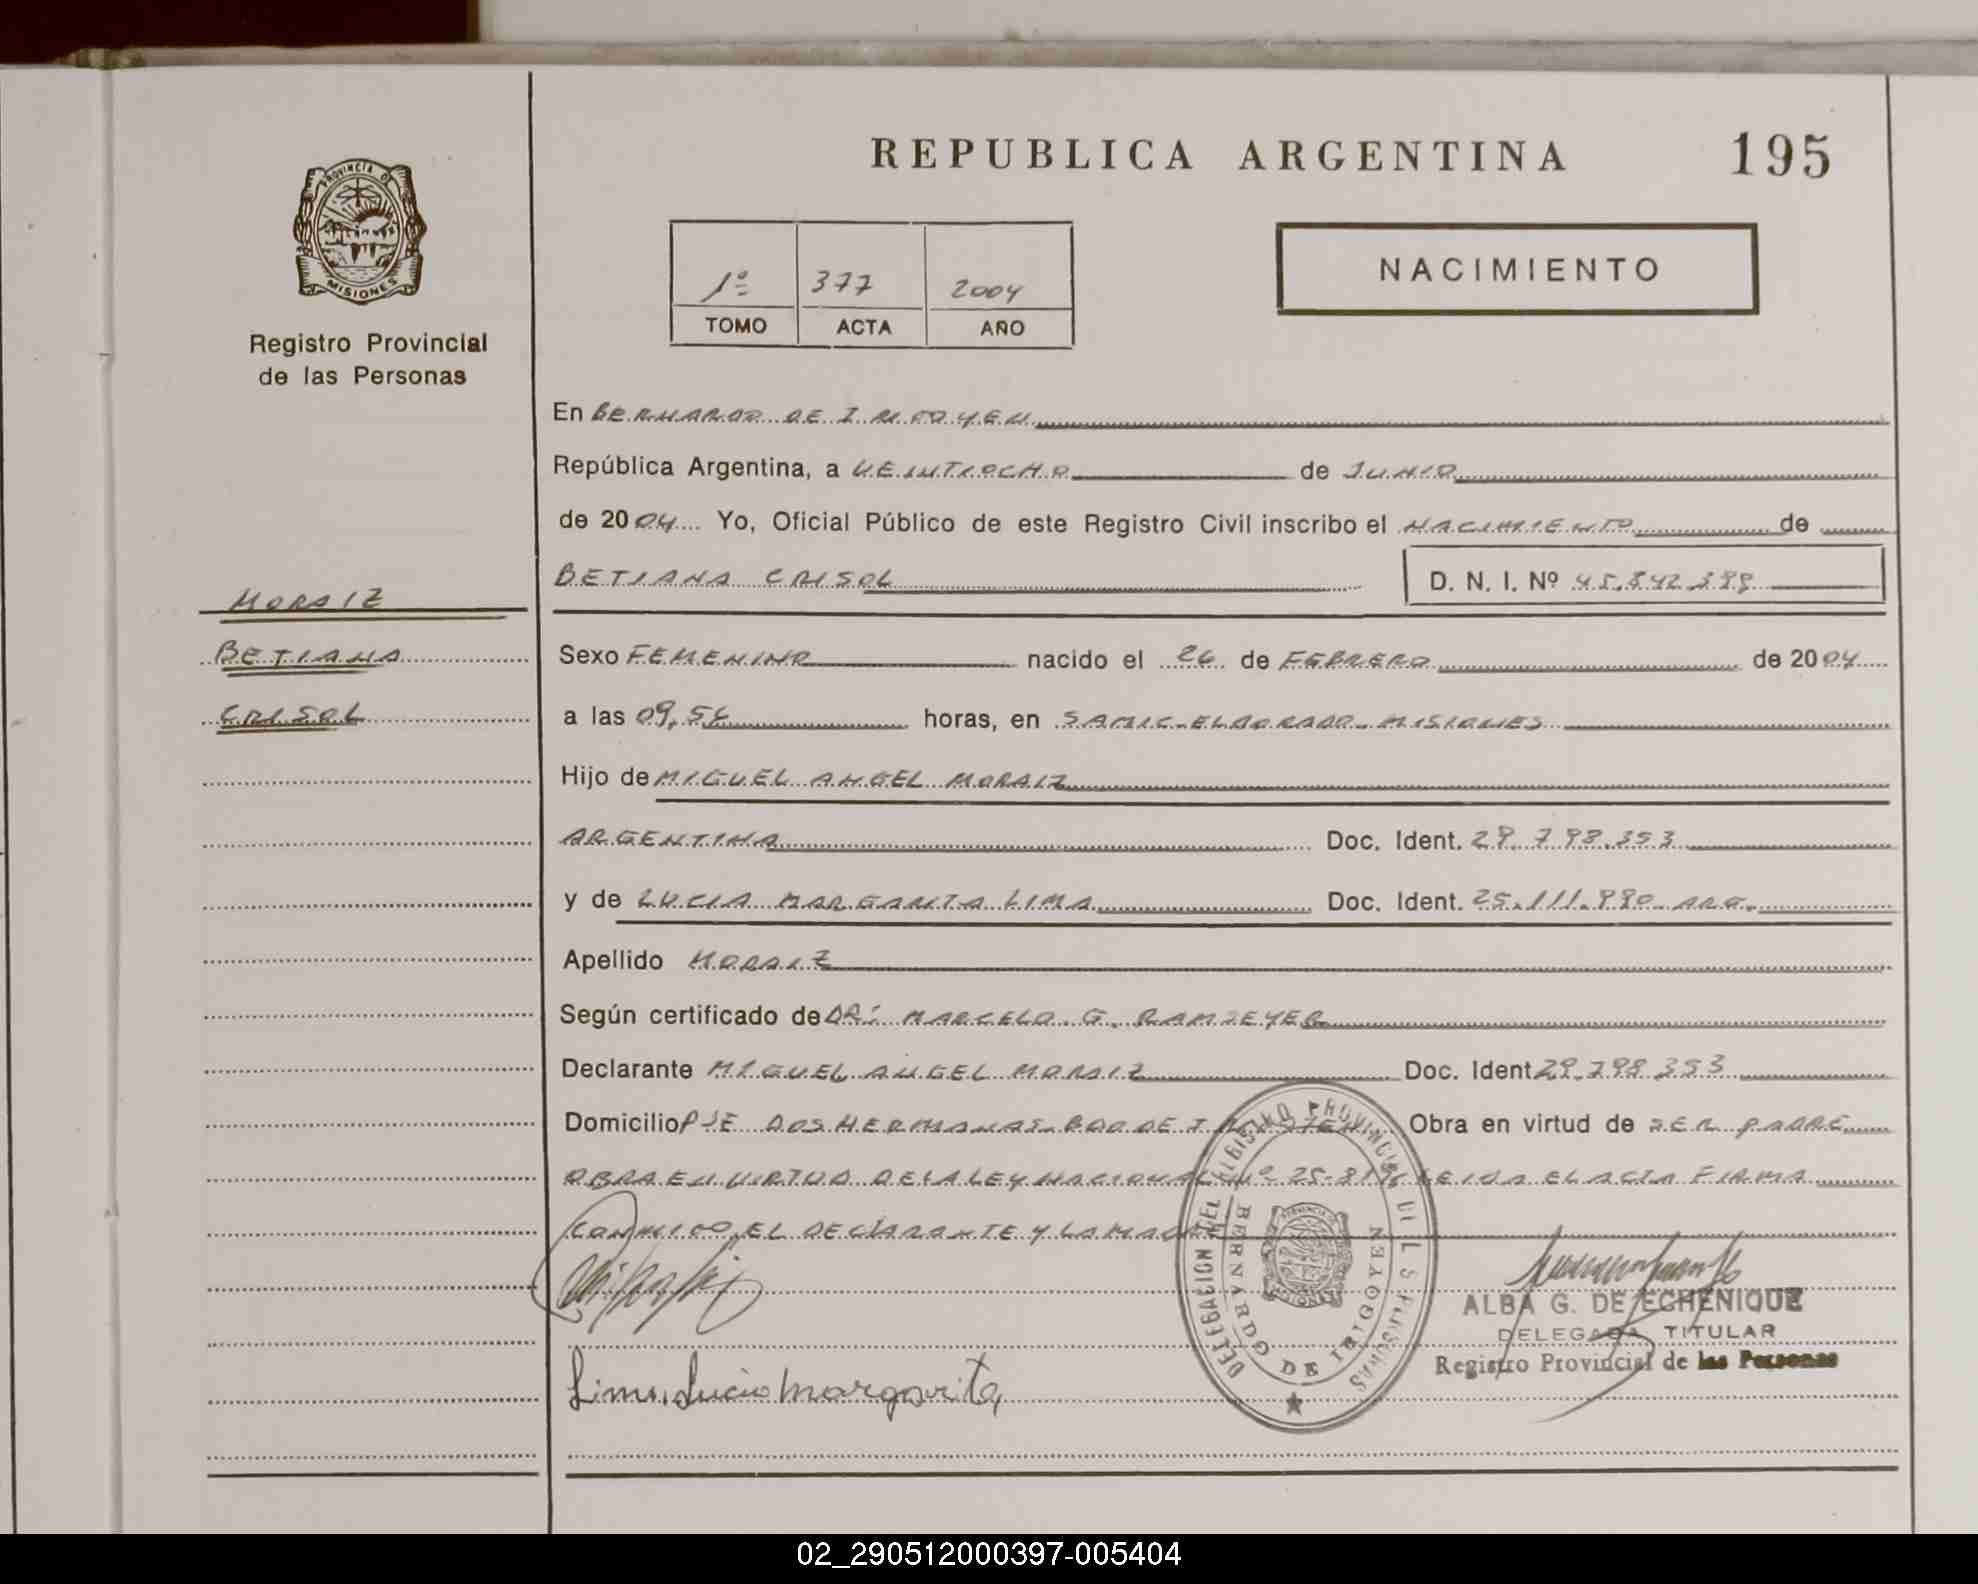 REPUBLICA ARGENTINA
195
PROVINCIA DE
MISIONES
Registro Provincial
de las Personas
1º 377 2004
TOMO ACTA AÑO
NACIMIENTO
En BERNARDO DE IRIGOYEN
República Argentina, a VEINTIOCHO de JUNIO
de 2004 Yo, Oficial Público de este Registro Civil inscribo el NACIMIENTO de
BETIANA CRISOL D. N. I. Nº
MORAIZ
BETIANA
CRISOL
Sexo FEMENINO nacido el 26 de FEBRERO de 2004
a las horas, en SAMIC-ELDORADO-MISIONES
Hijo de MIGUEL ANGEL MORAIZ
ARGENTINA Doc. Ident. 29.798.353
y de LUCIA MARGARITA LIMA Doc. Ident. ARG.
Apellido MORAIZ
Según certificado de DR: MARCELO G. RAMSEYER
Declarante MIGUEL ANGEL MORAIZ Doc. Ident 29.798.353
Domicilio PJE DOS HERMANAS-BDO DE IRIGOYEN Obra en virtud de SER PADRE
OBRA EN VIRTUD DE LA LEY NACIONAL Nº LEIDA EL ACTA FIRMA
CONMIGO EL DECLARANTE Y LA MADRE
DELEGACION DEL REGISTRO PROVINCIAL DE LAS PERSONAS
BERNARDO DE IRIGOYEN
ALBA G. DE ECHENIQUE
DELEGADA TITULAR
Registro Provincial de las Personas
Lima Lucia Margarita
02_290512000397-005404